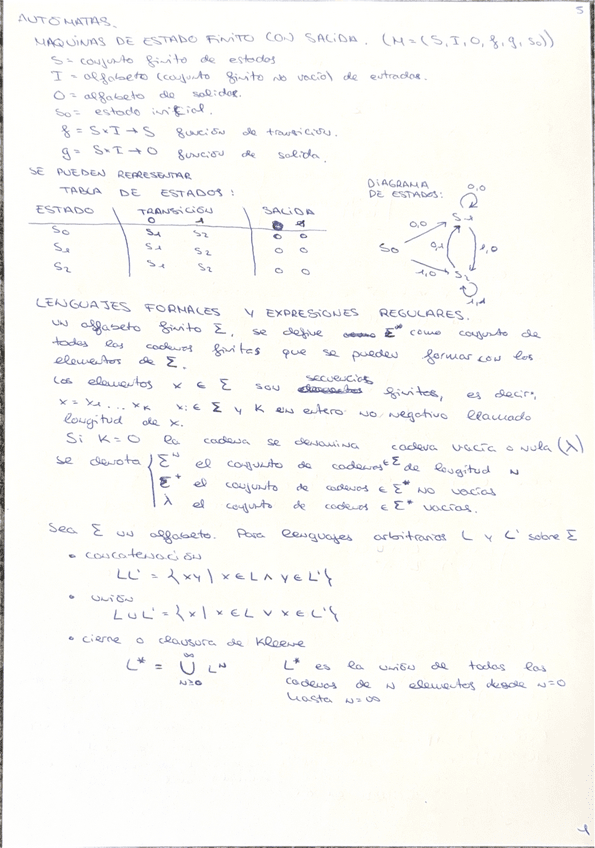 5
AUTÓMATAS.
MAQUINAS DE ESTADO FINITO CON SALIDA. (M = (S, I, O, f, g, S0))
S = conjunto finito de estados
I = alfabeto (conjunto finito no vacío) de entradas.
O = alfabeto de salidas.
S0 = estado inicial.
f = S×I → S función de transición.
g = S×I → O función de salida.
SE PUEDEN REPRESENTAR
TABLA DE ESTADOS:
ESTADO TRANSICIÓN SALIDA
0 1 0 1
S0 S1 S2 0 0
S1 S1 S2 0 0
S2 S1 S2 0 0
DIAGRAMA
DE ESTADOS:
0,0
S1
0,0
S0 0,1 1,0
1,0 S2
1,1
LENGUAJES FORMALES Y EXPRESIONES REGULARES.
un alfabeto finito Σ, se define Σ* como conjunto de
todas las cadenas finitas que se pueden formar con los
elementos de Σ.
Los elementos x ∈ Σ son secuencias finitas, es decir,
x = x1 ... xK xi ∈ Σ y K un entero no negativo llamado
longitud de x.
Si K = 0 la cadena se denomina cadena vacía o nula (λ)
se denota { Σᴺ el conjunto de cadenas ∈ Σ de longitud N
Σ⁺ el conjunto de cadenas ∈ Σ* no vacías
λ el conjunto de cadenas ∈ Σ* vacías.
Sea Σ un alfabeto. Para lenguajes arbitrarios L y L' sobre Σ
• concatenación
LL' = {xy | x ∈ L ∧ y ∈ L'}
• unión
L ∪ L' = {x | x ∈ L ∨ x ∈ L'}
• cierre o clausura de Kleene
L* = ∞ ∪ N≥0 Lᴺ L* es la unión de todas las
cadenas de N elementos desde N=0
hasta N=∞